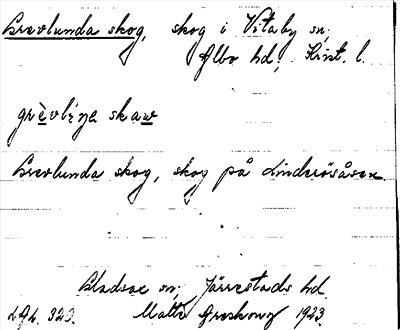 Grevlunda skog, skog i Vitaby sn;
Albo hd; Krist. l.
grèvlíŋa skaw
Grevlunda skog, skog på Linderödsåsen
Gladsax sn; Järrestads hd.
LAL 323. Matts 1923